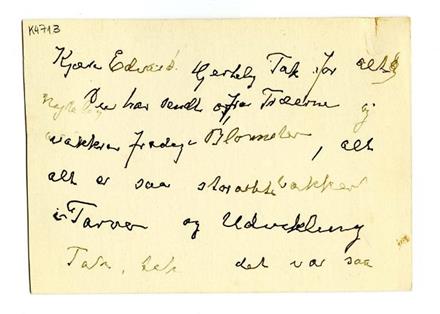 K4713
Kjære Edvard. Hjertelig Tak for alt
Du har sendt os, fra Træerne og
vakkre Blomster, alt
alt er saa vakkert
i Farver og Udvikling
Tak, tak det var saa